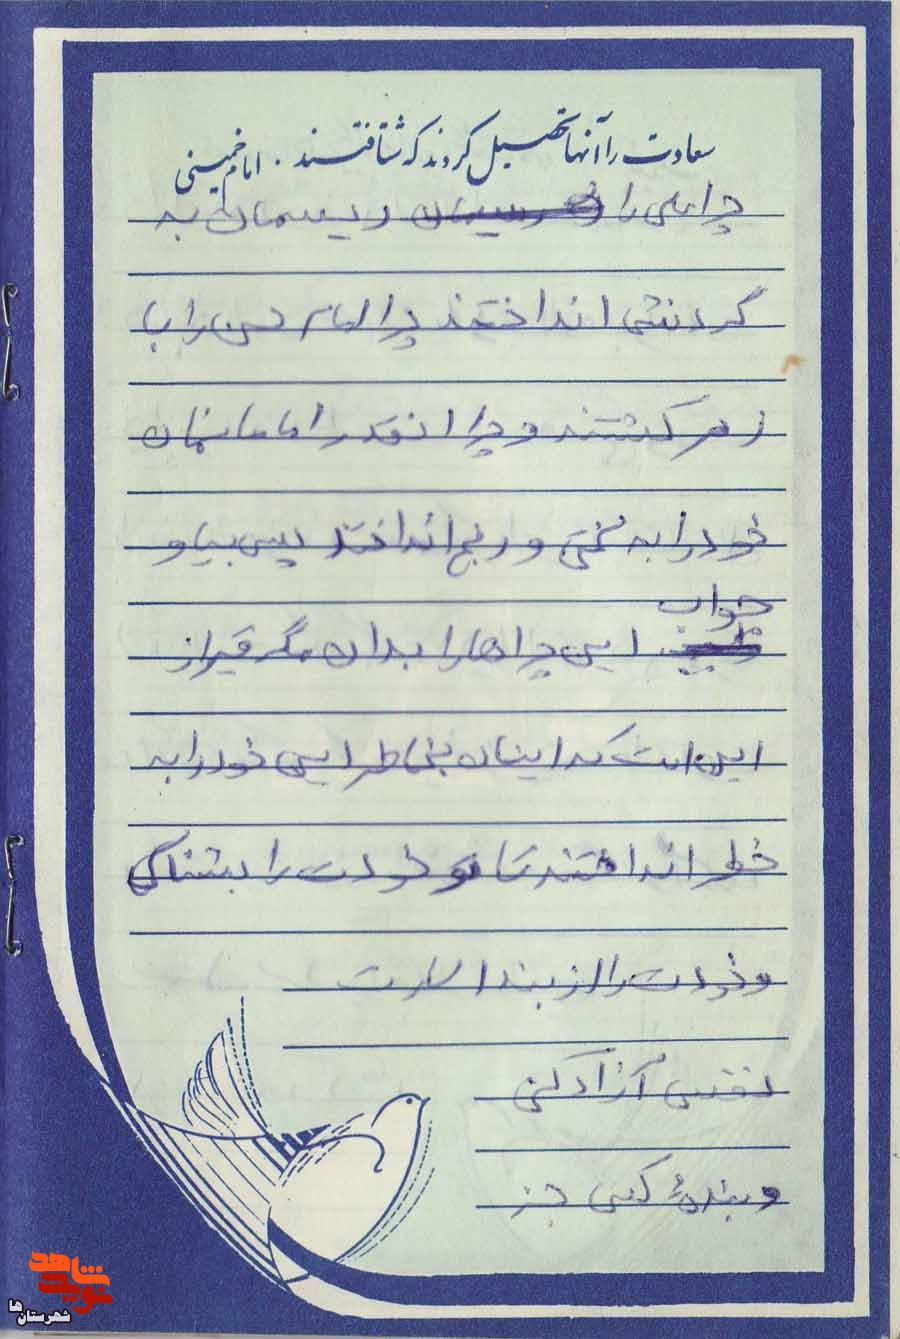 سعادت را آنها تحصیل کردند که شتافتند . امام خمینی
چرا علی را ریسمان به
گردنش انداختند چرا امام حسن را با
زهر کشتند و چرا انقدر امامانمان
خود را به سختی و رنج انداختند پس بیا و
جواب
این چراها را بدان مگر غیر از
این است که اینان بخاطر این خود را به
خطر انداختند تا تو خودت را بشناسی
و خودت را از بند اسارت
نفس آزاد کنی
و بندهٔ کسی جز
نوید شاهد
شهرستان ها